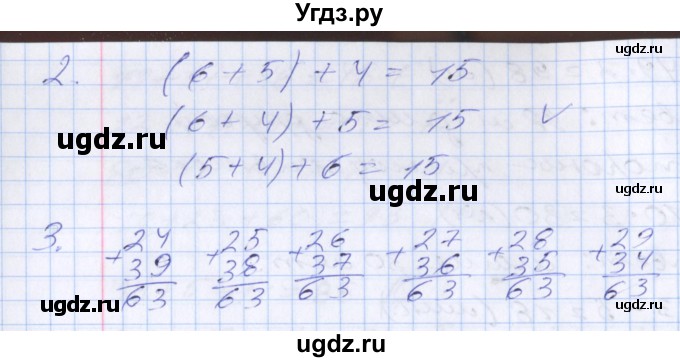 Угдз.ру
ugdz.ru
2. (6 + 5) + 4 = 15
(6 + 4) + 5 = 15 ✓
ugdz.ru
ugdz.ru
(5 + 4) + 6 = 15
ugdz.ru
ugdz.ru
3. +24 +25 +26 +27 +28 +29
39 38 37 36 35 34
63 63 63 63 63 63
ugdz.ru
ugdz.ru
ugdz.ru